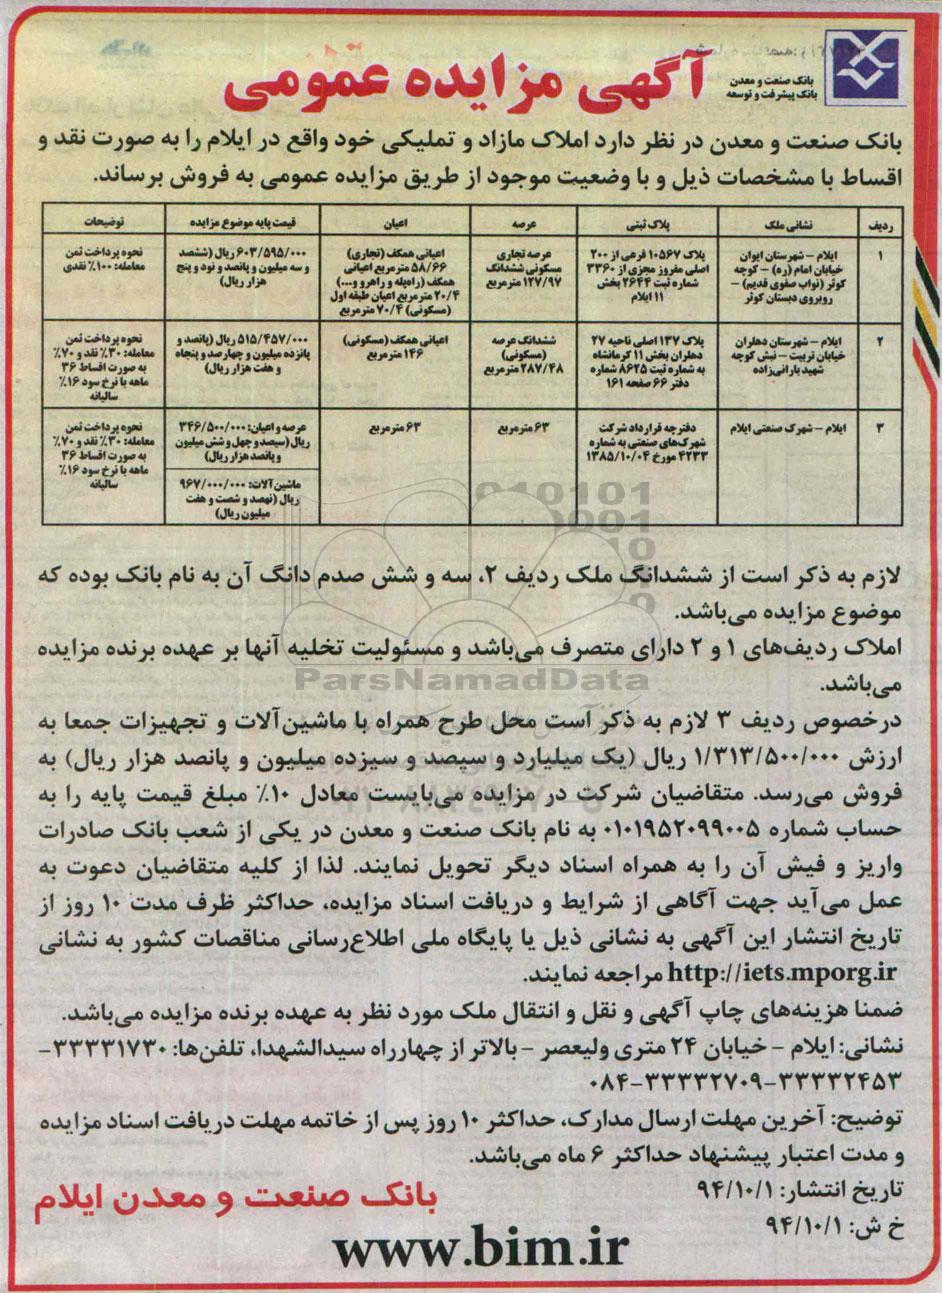 بانک صنعت و معدن
بانک پیشرفت و توسعه
آگهی مزایده عمومی
بانک صنعت و معدن در نظر دارد املاک مازاد و تملیکی خود واقع در ایلام را به صورت نقد و
اقساط با مشخصات ذیل و با وضعیت موجود از طریق مزایده عمومی به فروش برساند.
ردیف
نشانی ملک
پلاک ثبتی
عرصه
اعیان
قیمت پایه موضوع مزایده
توضیحات
۱
ایلام – شهرستان ایوان
خیابان امام (ره) – کوچه
کوثر (نواب صفوی قدیم) –
روبروی دبستان کوثر
پلاک ۱۰۵۶۷ فرعی از ۲۰۰
اصلی مفروز مجزی از ۳۳۶۰
شماره ثبت ۲۶۴۴ بخش
۱۱ ایلام
عرصه تجاری
مسکونی ششدانگ
۱۲۷/۹۷ مترمربع
اعیانی همکف (تجاری)
۵۸/۶۶ مترمربع اعیانی
همکف (راه‌پله و راهرو و...)
۲۰/۴ مترمربع اعیان طبقه اول
(مسکونی) ۷۰/۴ مترمربع
۶۰۳/۵۹۵/۰۰۰ ریال (ششصد
و سه میلیون و پانصد و نود و پنج
هزار ریال)
نحوه پرداخت ثمن
معامله: ۱۰۰٪ نقدی
۲
ایلام – شهرستان دهلران
خیابان تربیت – نبش کوچه
شهید بارانی‌زاده
پلاک ۱۳۷ اصلی ناحیه ۲۷
دهلران بخش ۱۱ کرمانشاه
به شماره ثبت ۸۶۲۵ شماره
دفتر ۶۶ صفحه ۱۶۱
ششدانگ عرصه
(مسکونی)
۲۸۷/۴۸ مترمربع
اعیانی همکف (مسکونی)
۱۴۶ مترمربع
۵۱۵/۴۵۷/۰۰۰ ریال (پانصد و
پانزده میلیون و چهارصد و پنجاه
و هفت هزار ریال)
نحوه پرداخت ثمن
معامله: ۳۰٪ نقد و ۷۰٪
به صورت اقساط ۳۶
ماهه با نرخ سود ۱۶٪
سالیانه
۳
ایلام – شهرک صنعتی ایلام
دفترچه قرارداد شرکت
شهرک‌های صنعتی به شماره
۴۲۳۳ مورخ ۱۳۸۵/۱۰/۰۴
۶۳ مترمربع
۶۳ مترمربع
عرصه و اعیان: ۳۴۶/۵۰۰/۰۰۰
ریال (سیصد و چهل و شش میلیون
و پانصد هزار ریال)
ماشین‌آلات: ۹۶۷/۰۰۰/۰۰۰
ریال (نهصد و شصت و هفت
میلیون ریال)
نحوه پرداخت ثمن
معامله: ۳۰٪ نقد و ۷۰٪
به صورت اقساط ۳۶
ماهه با نرخ سود ۱۶٪
سالیانه
لازم به ذکر است از ششدانگ ملک ردیف ۲، سه و شش صدم دانگ آن به نام بانک بوده که
موضوع مزایده می‌باشد.
املاک ردیف‌های ۱ و ۲ دارای متصرف می‌باشد و مسئولیت تخلیه آنها بر عهده برنده مزایده
می‌باشد.
ParsNamadData
درخصوص ردیف ۳ لازم به ذکر است محل طرح همراه با ماشین‌آلات و تجهیزات جمعا به
ارزش ۱/۳۱۳/۵۰۰/۰۰۰ ریال (یک میلیارد و سیصد و سیزده میلیون و پانصد هزار ریال) به
فروش می‌رسد. متقاضیان شرکت در مزایده می‌بایست معادل ۱۰٪ مبلغ قیمت پایه را به
حساب شماره ۰۱۰۱۹۵۲۰۹۹۰۰۵ به نام بانک صنعت و معدن در یکی از شعب بانک صادرات
واریز و فیش آن را به همراه اسناد دیگر تحویل نمایند. لذا از کلیه متقاضیان دعوت به
عمل می‌آید جهت آگاهی از شرایط و دریافت اسناد مزایده، حداکثر ظرف مدت ۱۰ روز از
تاریخ انتشار این آگهی به نشانی ذیل یا پایگاه ملی اطلاع‌رسانی مناقصات کشور به نشانی
http://iets.mporg.ir مراجعه نمایند.
ضمنا هزینه‌های چاپ آگهی و نقل و انتقال ملک مورد نظر به عهده برنده مزایده می‌باشد.
نشانی: ایلام – خیابان ۲۴ متری ولیعصر – بالاتر از چهارراه سیدالشهدا، تلفن‌ها: ۳۳۳۳۱۷۳۰–
۳۳۳۳۲۴۵۳–۳۳۳۳۲۷۰۹–۰۸۴
توضیح: آخرین مهلت ارسال مدارک، حداکثر ۱۰ روز پس از خاتمه مهلت دریافت اسناد مزایده
و مدت اعتبار پیشنهاد حداکثر ۶ ماه می‌باشد.
تاریخ انتشار: ۹۴/۱۰/۱
خ ش: ۹۴/۱۰/۱
بانک صنعت و معدن ایلام
www.bim.ir